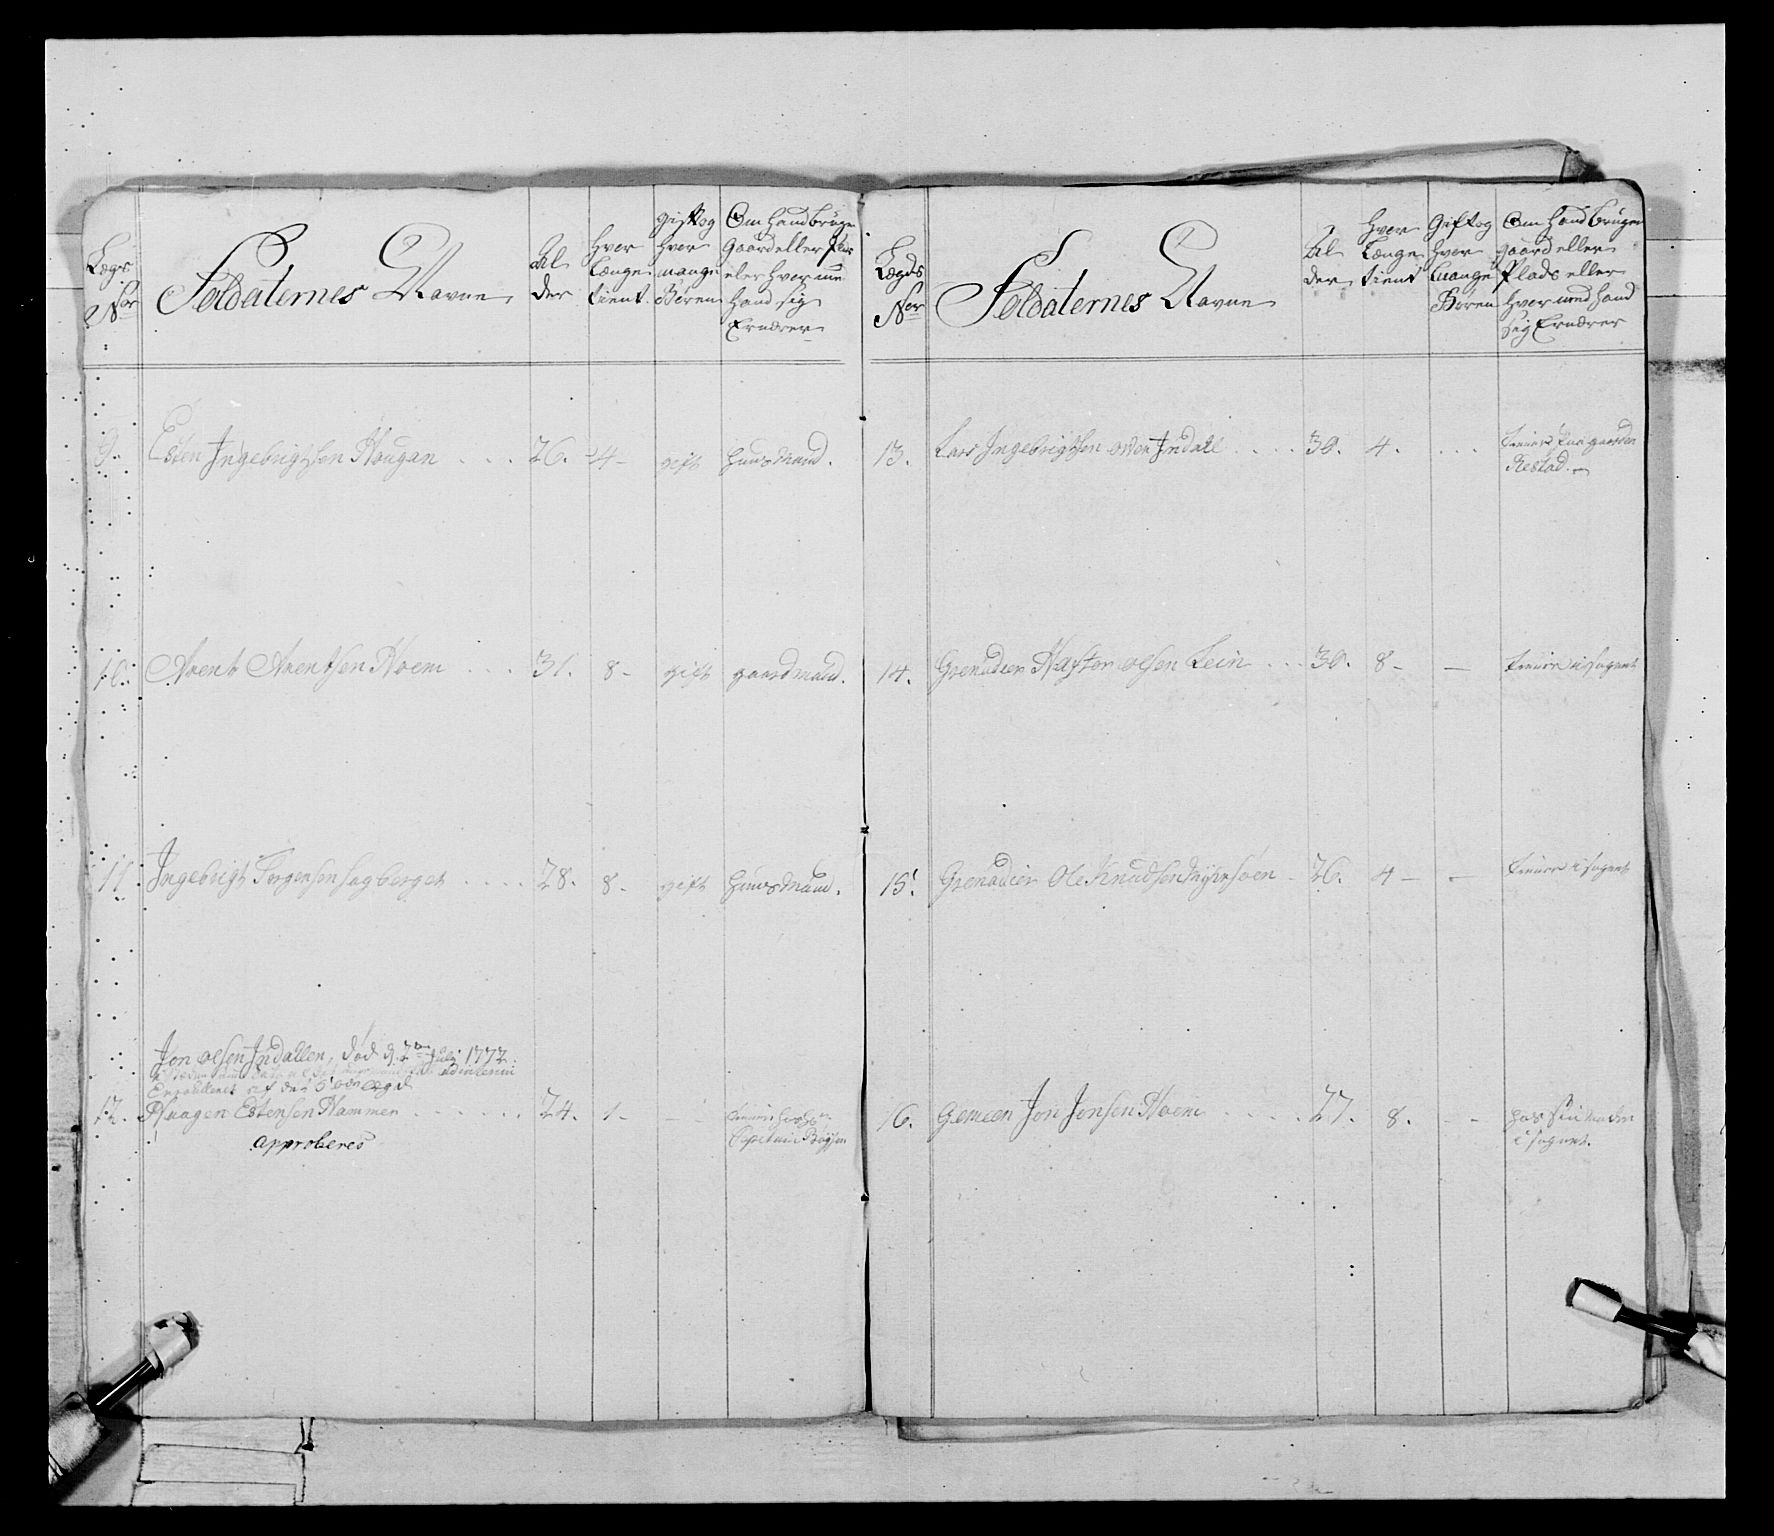 Lægs
Nor
Soldaternes Navne
Al
der
hver
Længe
tient
gift og
hver
mange
Børen
Om hand bruger
gaard eller Plas
eler hver med
hand sig
Ernærer
9. Esten Ingebrigtsen Haugan . . . 26. 4 - gift huusmand.
10. Arent Arentsen Hoem . . . 31. 8 - gift gaardmand.
11. Ingebrigt Torgersen sagberget . . . . 28. 8 - gift huusmand.
Jon olsen Indallen, død d. 2den July 1772.
Enrolleret af det 5
12. Haagen Estensen Hammer . . . . . . 24. 1 - - tiener hos hr
Capitain
approberes
Lægds
Nor
Soldaternes Navne
Al
der
hver
Længe
tient
Gift og
hver
mange
Børen
Om hand bruger
gaard eller
Plads eller
hver med hand
sig Ernærer
13. Lars Ingebrigtsen over Indall . . . . 30. 4. . . . tiener paa gaarden
Restad.
14. Grenadeer olsen Lein . . . 30. 8 - - tiener i sognet
15. Grenadeer Ole Knudsen . 26. 4 - - tiener i sognet
16. Gemeen Jon Jonsen Hoem . . . . . 27. 8. - - hos sin
i sognet.